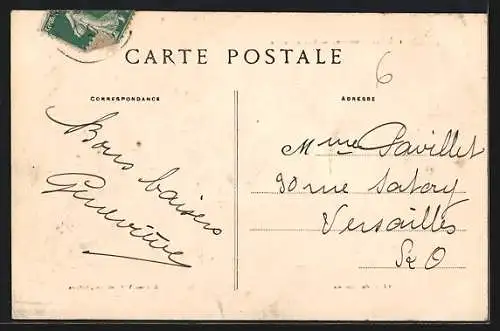 CARTE POSTALE
6
CORRESPONDANCE
ADRESSE
Bons baisers
Geneviève
Mme Pavillet
90 rue Satory
Versailles
S & O